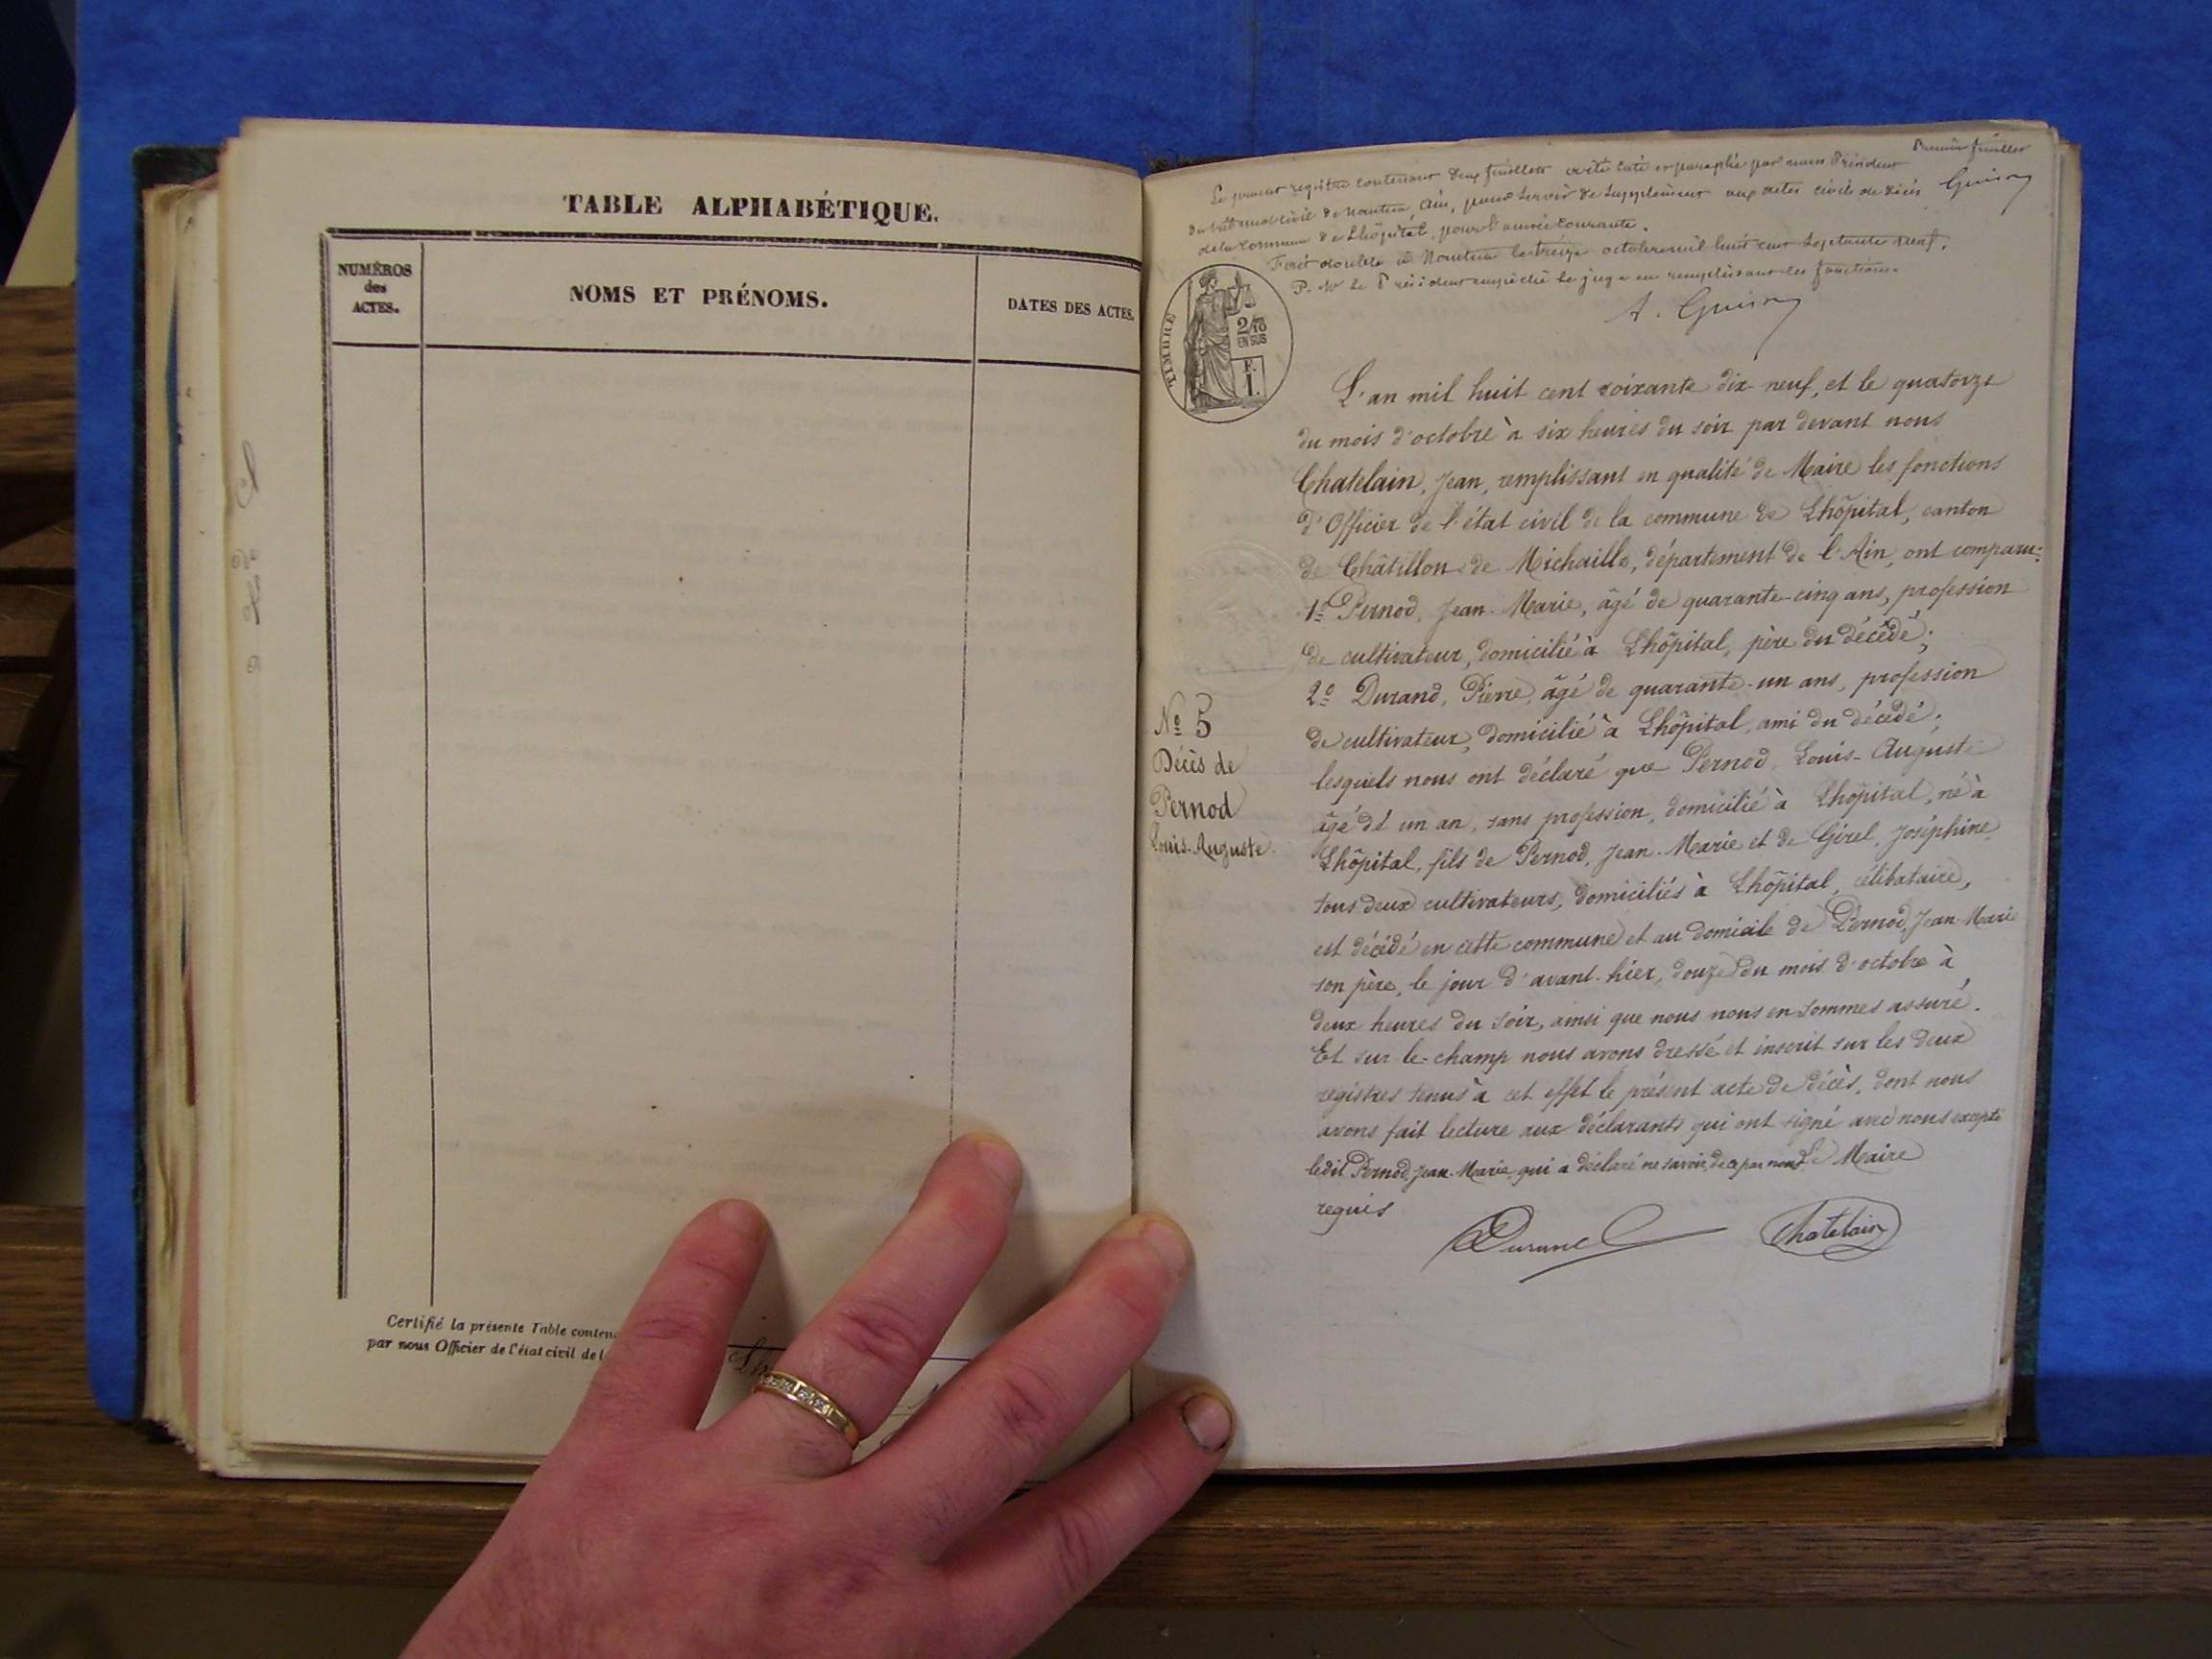 TABLE ALPHABÉTIQUE.
NUMÉROS
des
ACTES.
NOMS ET PRÉNOMS.
DATES DES ACTES.
Certifié la présente Table conten
par nous Officier de l'état civil de l
Premier feuillet
Le présent registre contenant deux feuillets a été coté et paraphé par nous Président
du tribunal civil de Nantua, Ain, pour servir de supplément aux actes civils de décès
de la commune de Lhôpital, pour l'année courante.
Fait double à Nantua le treize octobre mil huit cent septante neuf.
P. Mr le Président empêché le juge en remplissant les fonctions
A. Guison
TIMBRE
2/10
EN SUS
F.
1.
L'an mil huit cent soixante dix-neuf, et le quatorze
du mois d'octobre à six heures du soir par devant nous
Chatelain, Jean, remplissant en qualité de Maire les fonctions
d'Officier de l'état civil de la commune de Lhôpital, canton
de Châtillon-de Michaille, département de l'Ain, ont comparu:
1º Pernod, Jean-Marie, âgé de quarante-cinq ans, profession
de cultivateur, domicilié à Lhôpital, père du décédé;
2º Durand, Pierre, âgé de quarante-un ans, profession
de cultivateur, domicilié à Lhôpital, ami du décédé;
lesquels nous ont déclaré que Pernod, Louis-Auguste
âgé de un an, sans profession, domicilié à Lhôpital, né à
Lhôpital, fils de Pernod, Jean-Marie et de Girel, Joséphine
tous deux cultivateurs, domiciliés à Lhôpital, célibataire,
est décédé en cette commune et au domicile de Pernod, Jean-Marie
son père, le jour d'avant-hier, douze du mois d'octobre à
deux heures du soir, ainsi que nous nous en sommes assuré.
Et sur-le-champ nous avons dressé et inscrit sur les deux
registres tenus à cet effet le présent acte de décès, dont nous
avons fait lecture aux déclarants qui ont signé avec nous excepté
ledit Pernod, Jean-Marie qui a déclaré ne savoir, de ce par nous Le Maire
requis
Durand
Chatelain
Nº 5
Décès de
Pernod
Louis-Auguste